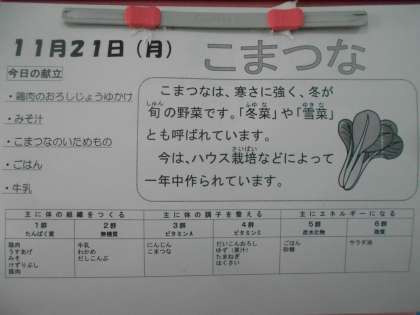 11月21日(月)
こまつな
今日の献立
・鶏肉のおろしじょうゆかけ
・みそ汁
・こまつなのいためもの
・ごはん
・牛乳
こまつなは、寒さに強く、冬が
しゅん ふゆな ゆきな
旬の野菜です。「冬菜」や「雪菜」
とも呼ばれています。
さいばい
今は、ハウス栽培などによって
一年中作られています。
主に体の組織をつくる 主に体の調子を整える 主にエネルギーになる
1群 2群 3群 4群 5群 6群
たんぱく質 無機質 ビタミンA ビタミンC 炭水化物 脂質
鶏肉 牛乳 にんじん だいこんおろし ごはん サラダ油
うすあげ わかめ こまつな ゆず(果汁) 砂糖
みそ だしこんぶ たまねぎ
けずりぶし はくさい
豚肉